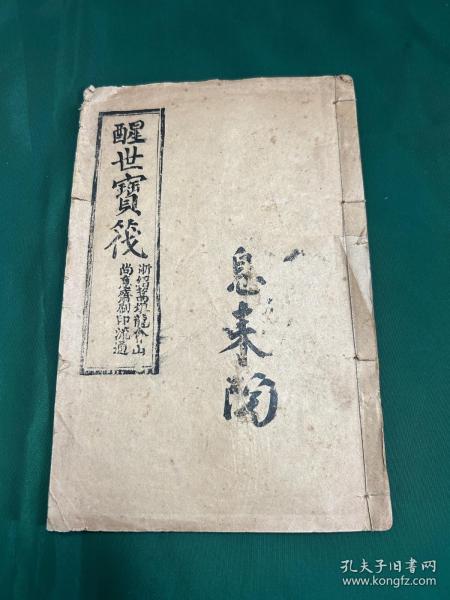 醒世寶筏
浙紹
山
尚德齋刻印流通
息來院
孔夫子旧书网
www.kongfz.com